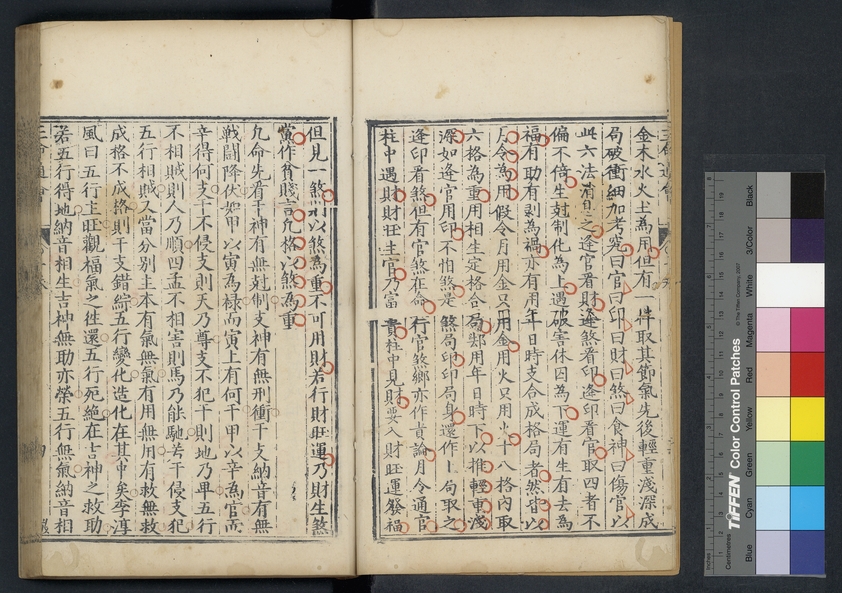 金木水火土為用但有一件取其節氣先後輕重淺深成
局破衝細加考究曰官曰印曰財曰煞曰食神曰傷官以
此六法消息之逢官看財逢煞看印逢印看官取四者不
偏不倍生尅制化為上遇破害休囚為下運有生有去為
福有助有剝為禍亦有用年日時支合成格局者然皆以
月令為用假令月用金只用金用火只用火十八格內取
六格為重用相生定格合局却用年日時下以推輕重淺
深如逢官用印不怕煞是煞局印印局身還作上局取之
逢印看煞但有官煞在命行官煞鄉亦作貴論月令通官
柱中遇財財旺生官乃富貴柱中見財要入財旺運發福
但見一煞則以煞為重不可用財若行財旺運乃財生煞
黨作貧賤言凡格以煞為重
凡命先看干神有無尅制支神有無刑衝干支納音有無
戰鬬降伏如甲以寅為祿而寅上有何干甲以辛為官而
辛得何支干不侵支則天乃尊支不犯干則地乃卑五行
不相賊則人乃順四孟不相害則馬乃能馳若干侵支犯
五行相賊又當分別主本有氣無氣有用無用有救無救
成格不成格則干支錯綜五行變化造化在其中矣李淳
風曰五行主旺觀福氣之徃還五行死絶在吉神之救助
若五行得地納音相生吉神無助亦榮五行無氣納音相
三命通會
三命通會
TIFFEN Color Control Patches
© The Tiffen Company, 2007
Inches
Centimetres
Blue
Cyan
Green
Yellow
Red
Magenta
White
3/Color
Black